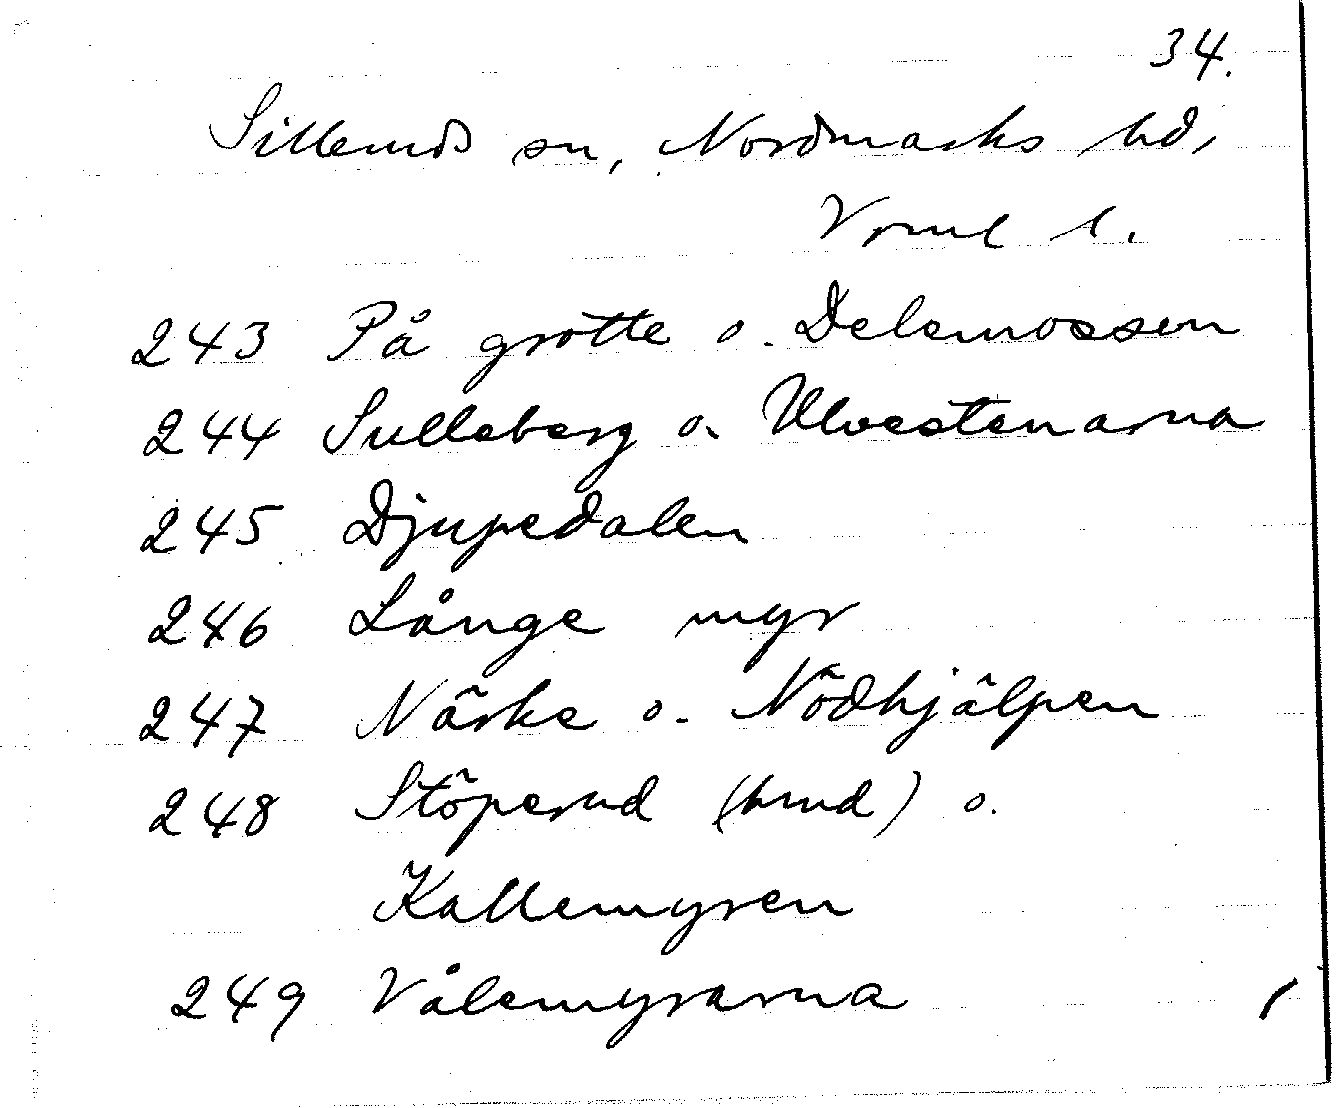 34.
Silleruds sn, Nordmarks hd,
Vrml l.
243 På grotte o. Delemossen
244 Sulleberg o. Ulvestenarna
245 Djupedalen
246 Långe myr
247 Närke o. Nödhjälpen
248 Stöperud (hmd) o.
Kallemyren
249 Vålemyrarna